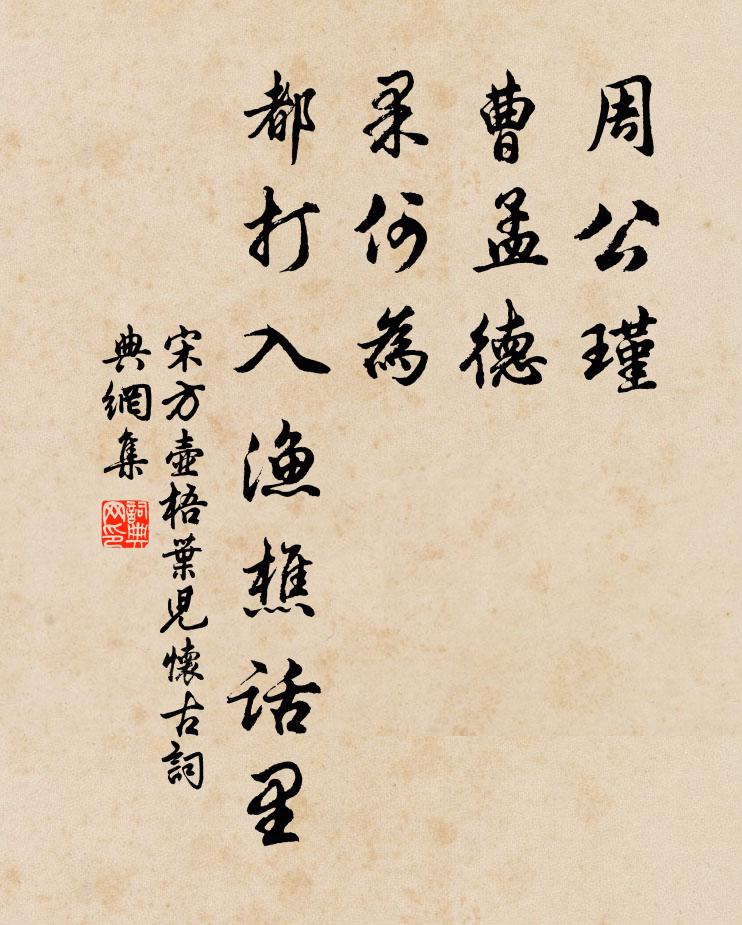 周公瑾
曹孟德
果何為
都打入漁樵話里
宋方壺梧葉兒懷古詞
典網集
詞典網印